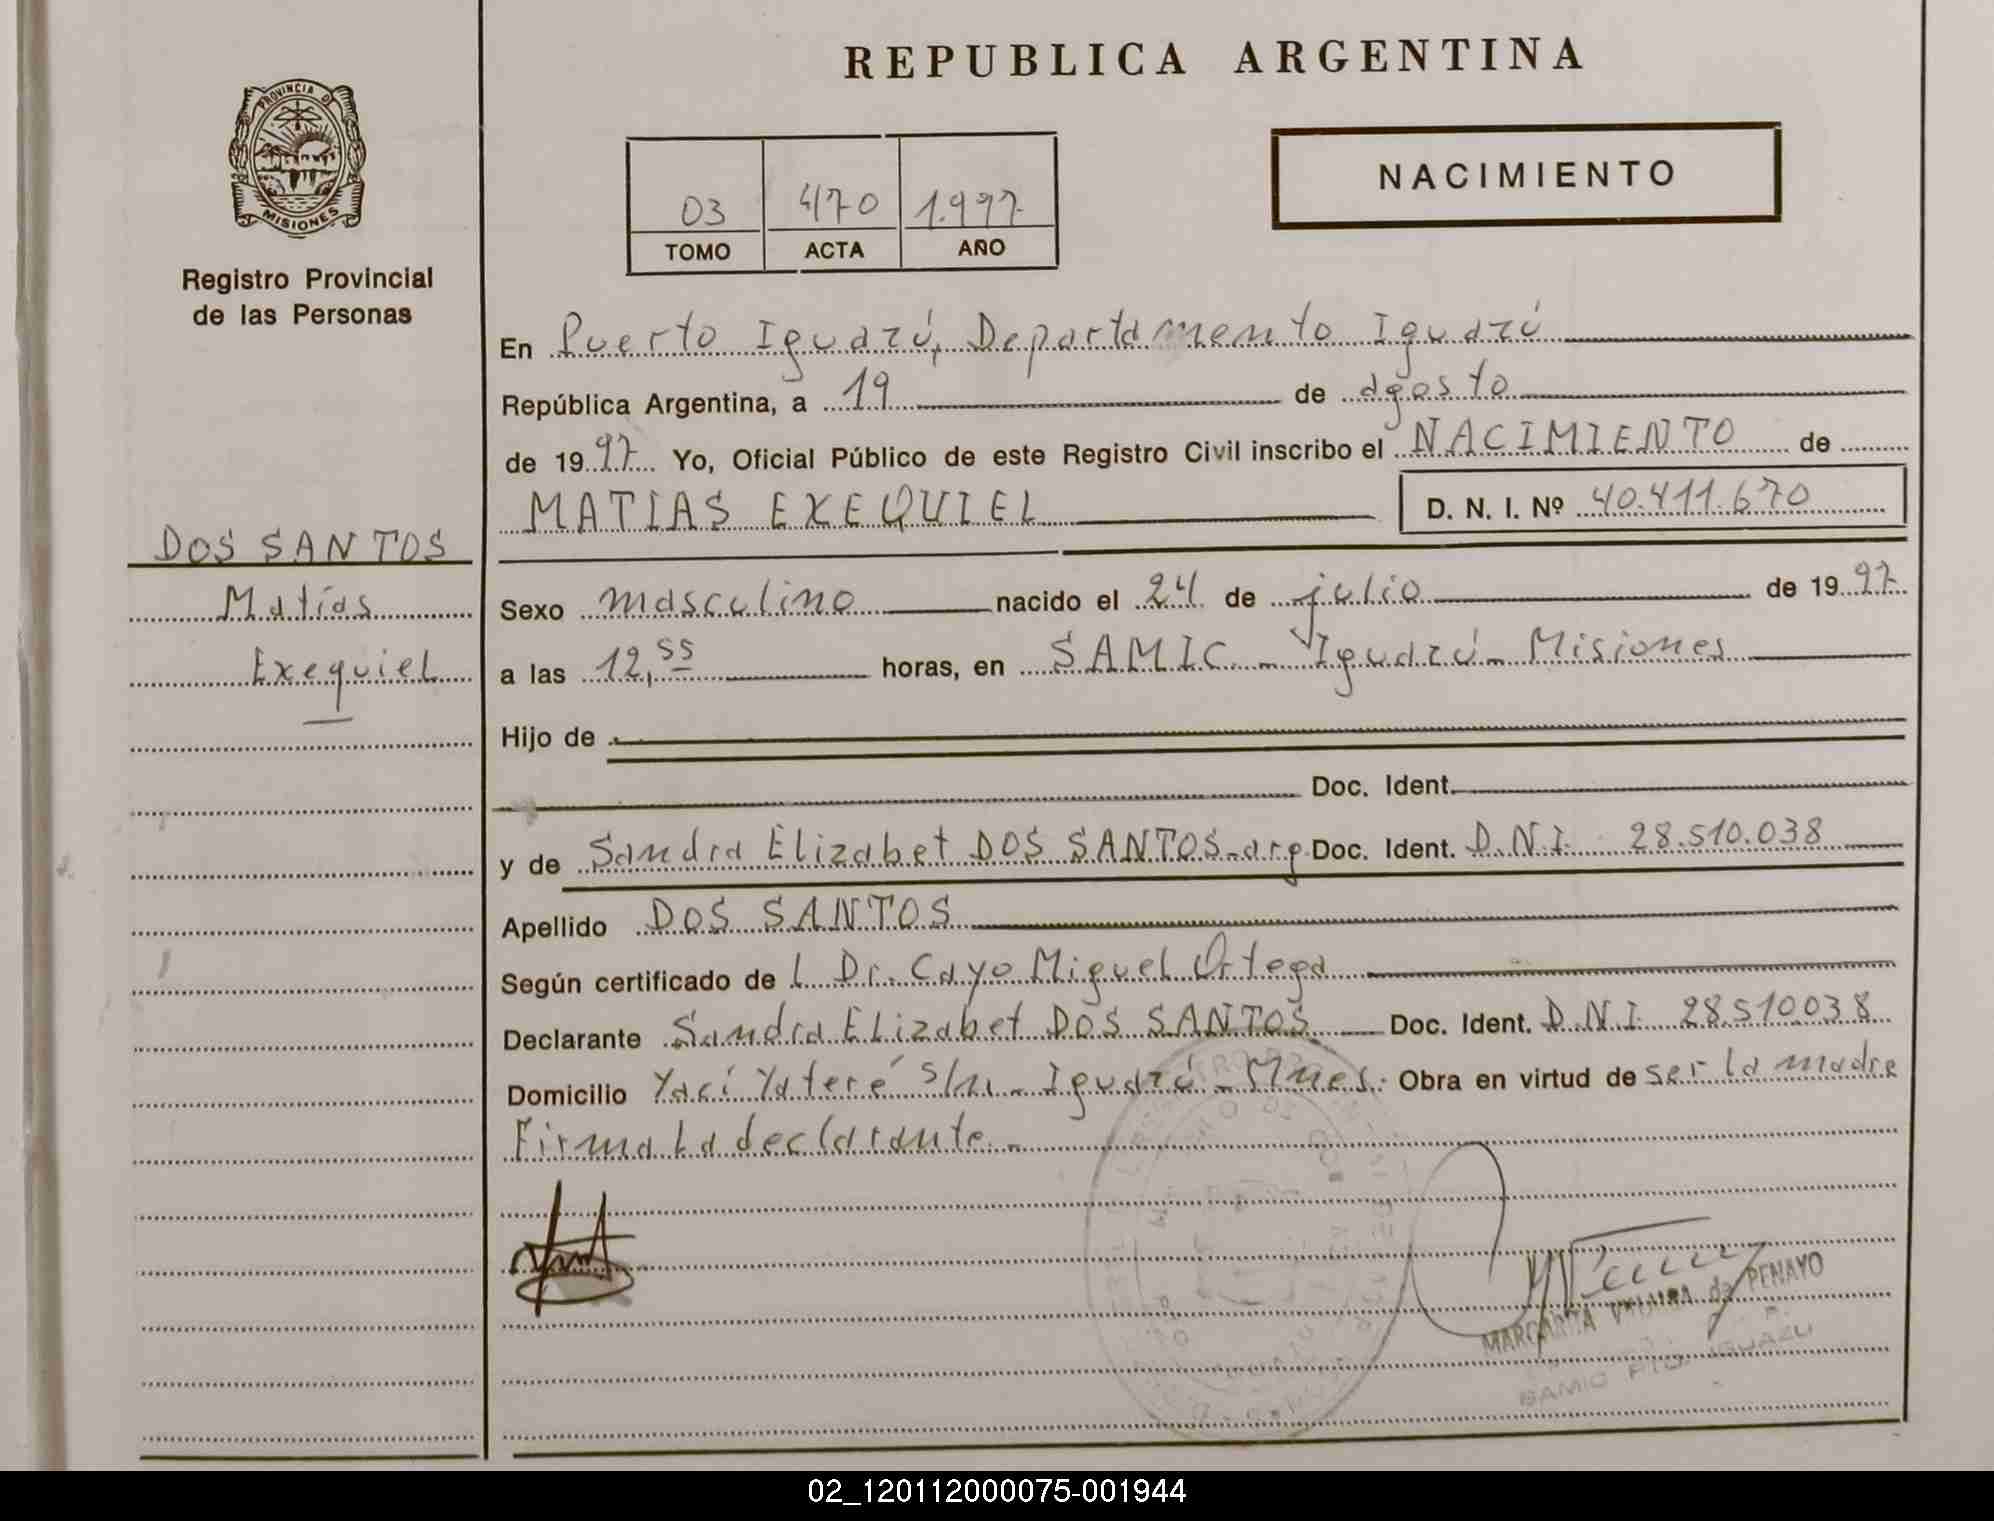 REPUBLICA ARGENTINA
PROVINCIA DE
MISIONES
Registro Provincial
de las Personas
03 470 1.997
TOMO ACTA AÑO
NACIMIENTO
En Puerto Iguazú, Departamento Iguazú
República Argentina, a 19 de agosto
de 1997 Yo, Oficial Público de este Registro Civil inscribo el NACIMIENTO de
MATIAS EXEQUIEL D. N. I. Nº 40.411.670
DOS SANTOS
Matías
Exequiel
Sexo masculino nacido el 24 de julio de 1997
a las 12,55 horas, en SAMIC - Iguazú - Misiones
Hijo de
Doc. Ident.
y de Sandra Elizabet DOS SANTOS-arg Doc. Ident. D.N.I. 28.510.038
Apellido DOS SANTOS
Según certificado de l Dr. Cayo Miguel Ortega
Declarante Sandra Elizabet DOS SANTOS Doc. Ident. D.N.I. 28.510.038
Domicilio Yací Yateré s/n - Iguazú - Mnes. Obra en virtud de ser la madre
Firma La declarante.-
MARGARITA de PENAYO
SAMIC PTO. IGUAZU
02_120112000075-001944